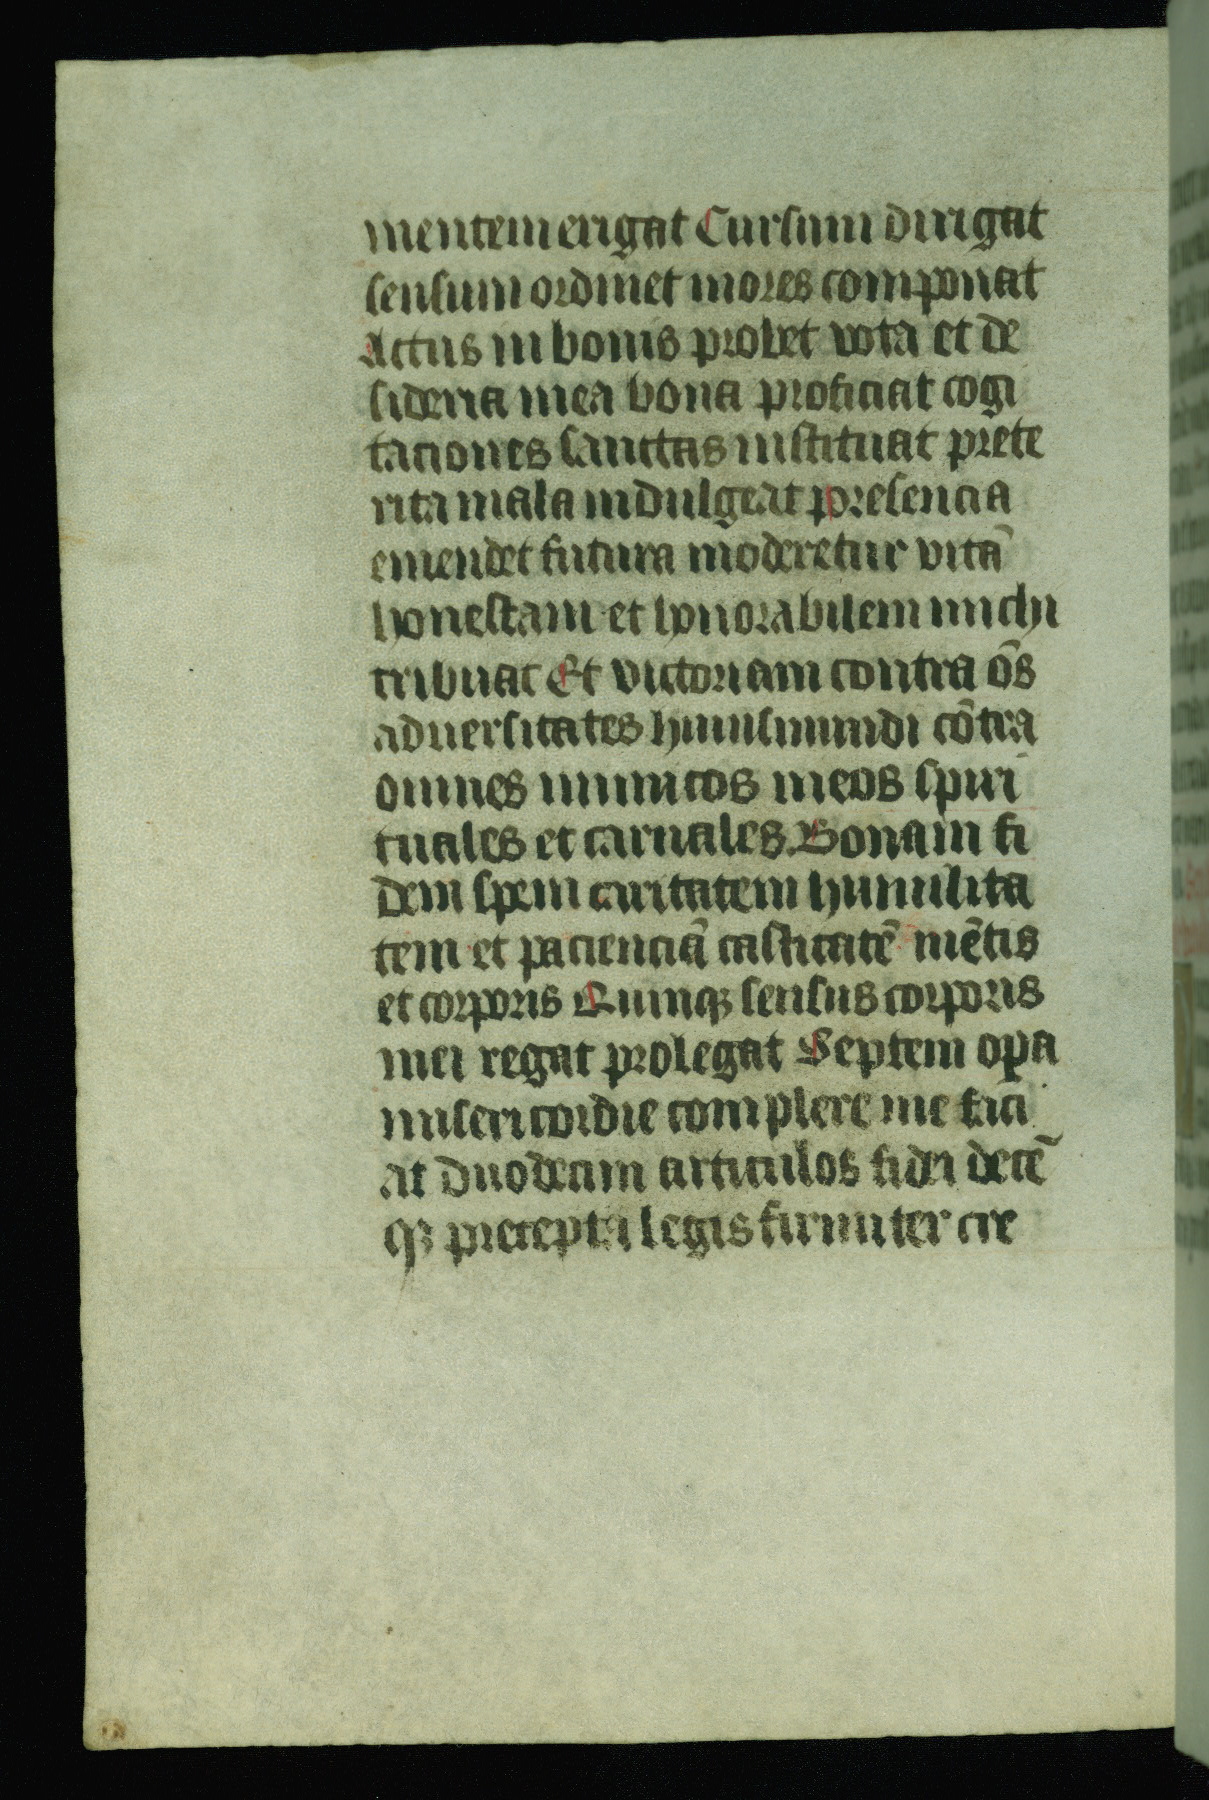 mentem erigat Cursum dirigat
sensum ordinet mores componat
Actus in bonis probet vota et de
sideria mea bona proficiat cogi
taciones sanctas instituat prete
rita mala indulgeat presencia
emendet futura moderetur vitā
honestam et honorabilem michi
tribuat Et victoriam contra ōs
adversitates huius mundi cōtra
omnes inimicos meos spiri
tuales et carnales Bonam fi
dem spem caritatem humilita
tem et pacienciā castitatē mētis
et corporis Quinqꝫ sensus corporis
mei regat prolegat Septem oꝑa
misericordie complere me faci
at duodecim articulos fidei decē
qꝫ precepta legis firmiter cre